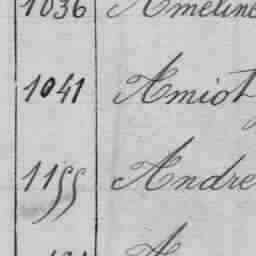 1036 Ameline
1041 Amiot
1155 Andre